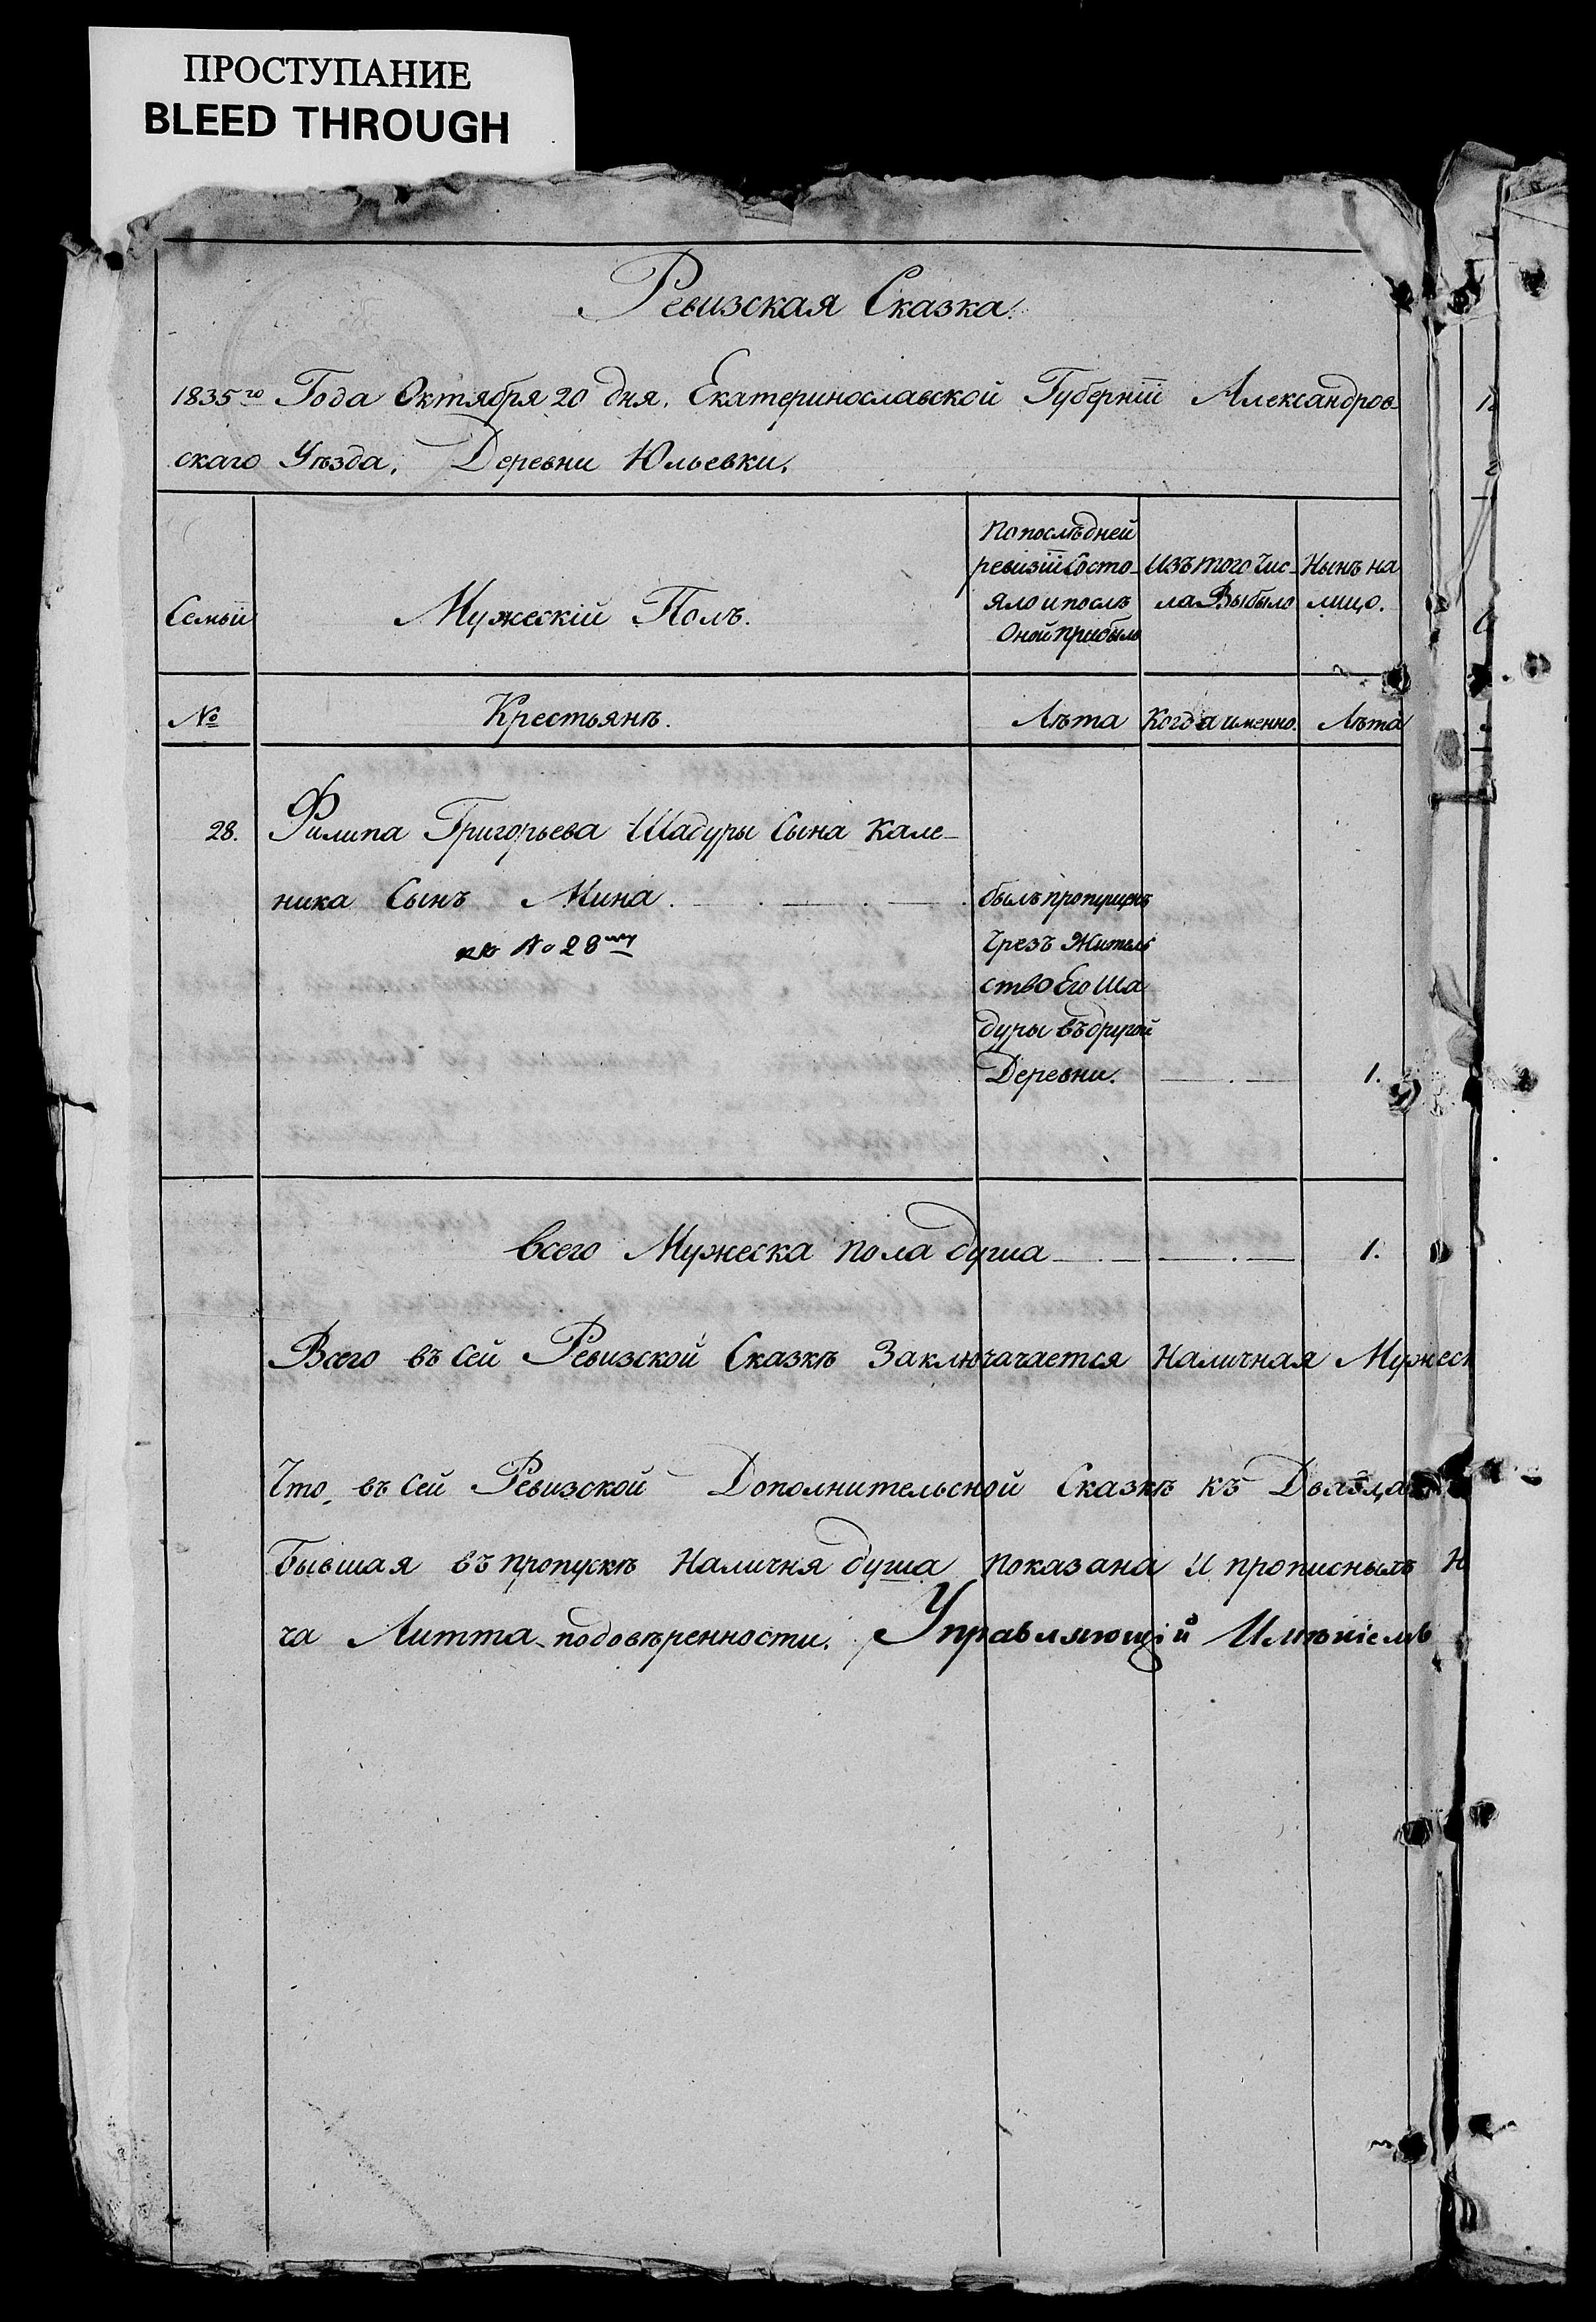 ПРОСТУПАНИЕ
BLEED THROUGH
Ревизская Сказка.
1835го Года Октября 20 дня. Екатеринославской Губерніи Александров-
скаго Уѣзда. Деревни Юльевки.
Семьи
Мужескій Полъ.
По послѣдней
ревизіи Состо-
яло и послѣ
Оной прибыло
Изъ того Чис-
ла Выбыло
Нынѣ на
лицо.
№
Крестьянъ.
Лѣта
Когда именно.
Лѣта
28.
Филипа Григорьева Шадуры Сына Кале-
ника Сынъ Мина
былъ пропущенъ
къ № 28му
Чрезъ Житель
ство Его Ша
дуры въ другой
Деревни.
1.
Всего Мужеска пола душа
1.
Всего въ сей Ревизской Сказкѣ Заключачается Наличная Мужеск
Что въ сей Ревизской Дополнительсной Сказкѣ къ Двадца
Бывшая въ пропускѣ Наличня душа показана и прописныхъ Н
ча Литта подовѣренности. Управляющій Имѣніемъ